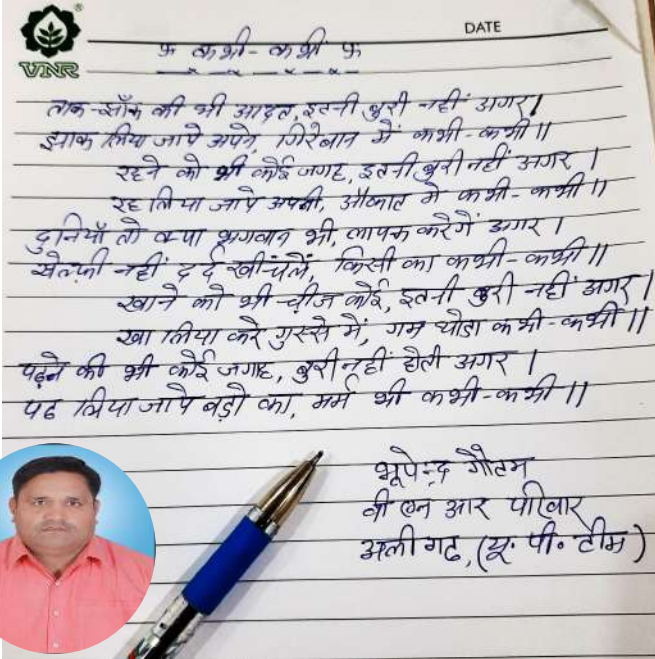 VNR
DATE
卐 कभी-कभी 卐
ताक-झाँक की भी आदत, इतनी बुरी नहीं अगर।
झाक लिया जाये अपने, गिरेबान में कभी-कभी॥
रहने को भी कोई जगह, इतनी बुरी नहीं अगर।
रह लिया जाये अपनी, औकात में कभी-कभी॥
दुनियाँ तो क्या भगवान भी, लायक करेगें अगर।
सेल्फी नहीं दर्द खींचलें, किसी का कभी-कभी॥
खाने को भी चीज कोई, इतनी बुरी नहीं अगर।
खा लिया करे गुस्से में, गम थोडा कभी-कभी॥
पढ़ने की भी कोई जगाह, बुरी नहीं होती अगर।
पढ लिया जाये बड़ो का, मर्म भी कभी-कभी॥
भूपेन्द्र गौतम
वी एन आर परिवार
अलीगढ, (यू. पी. टीम)